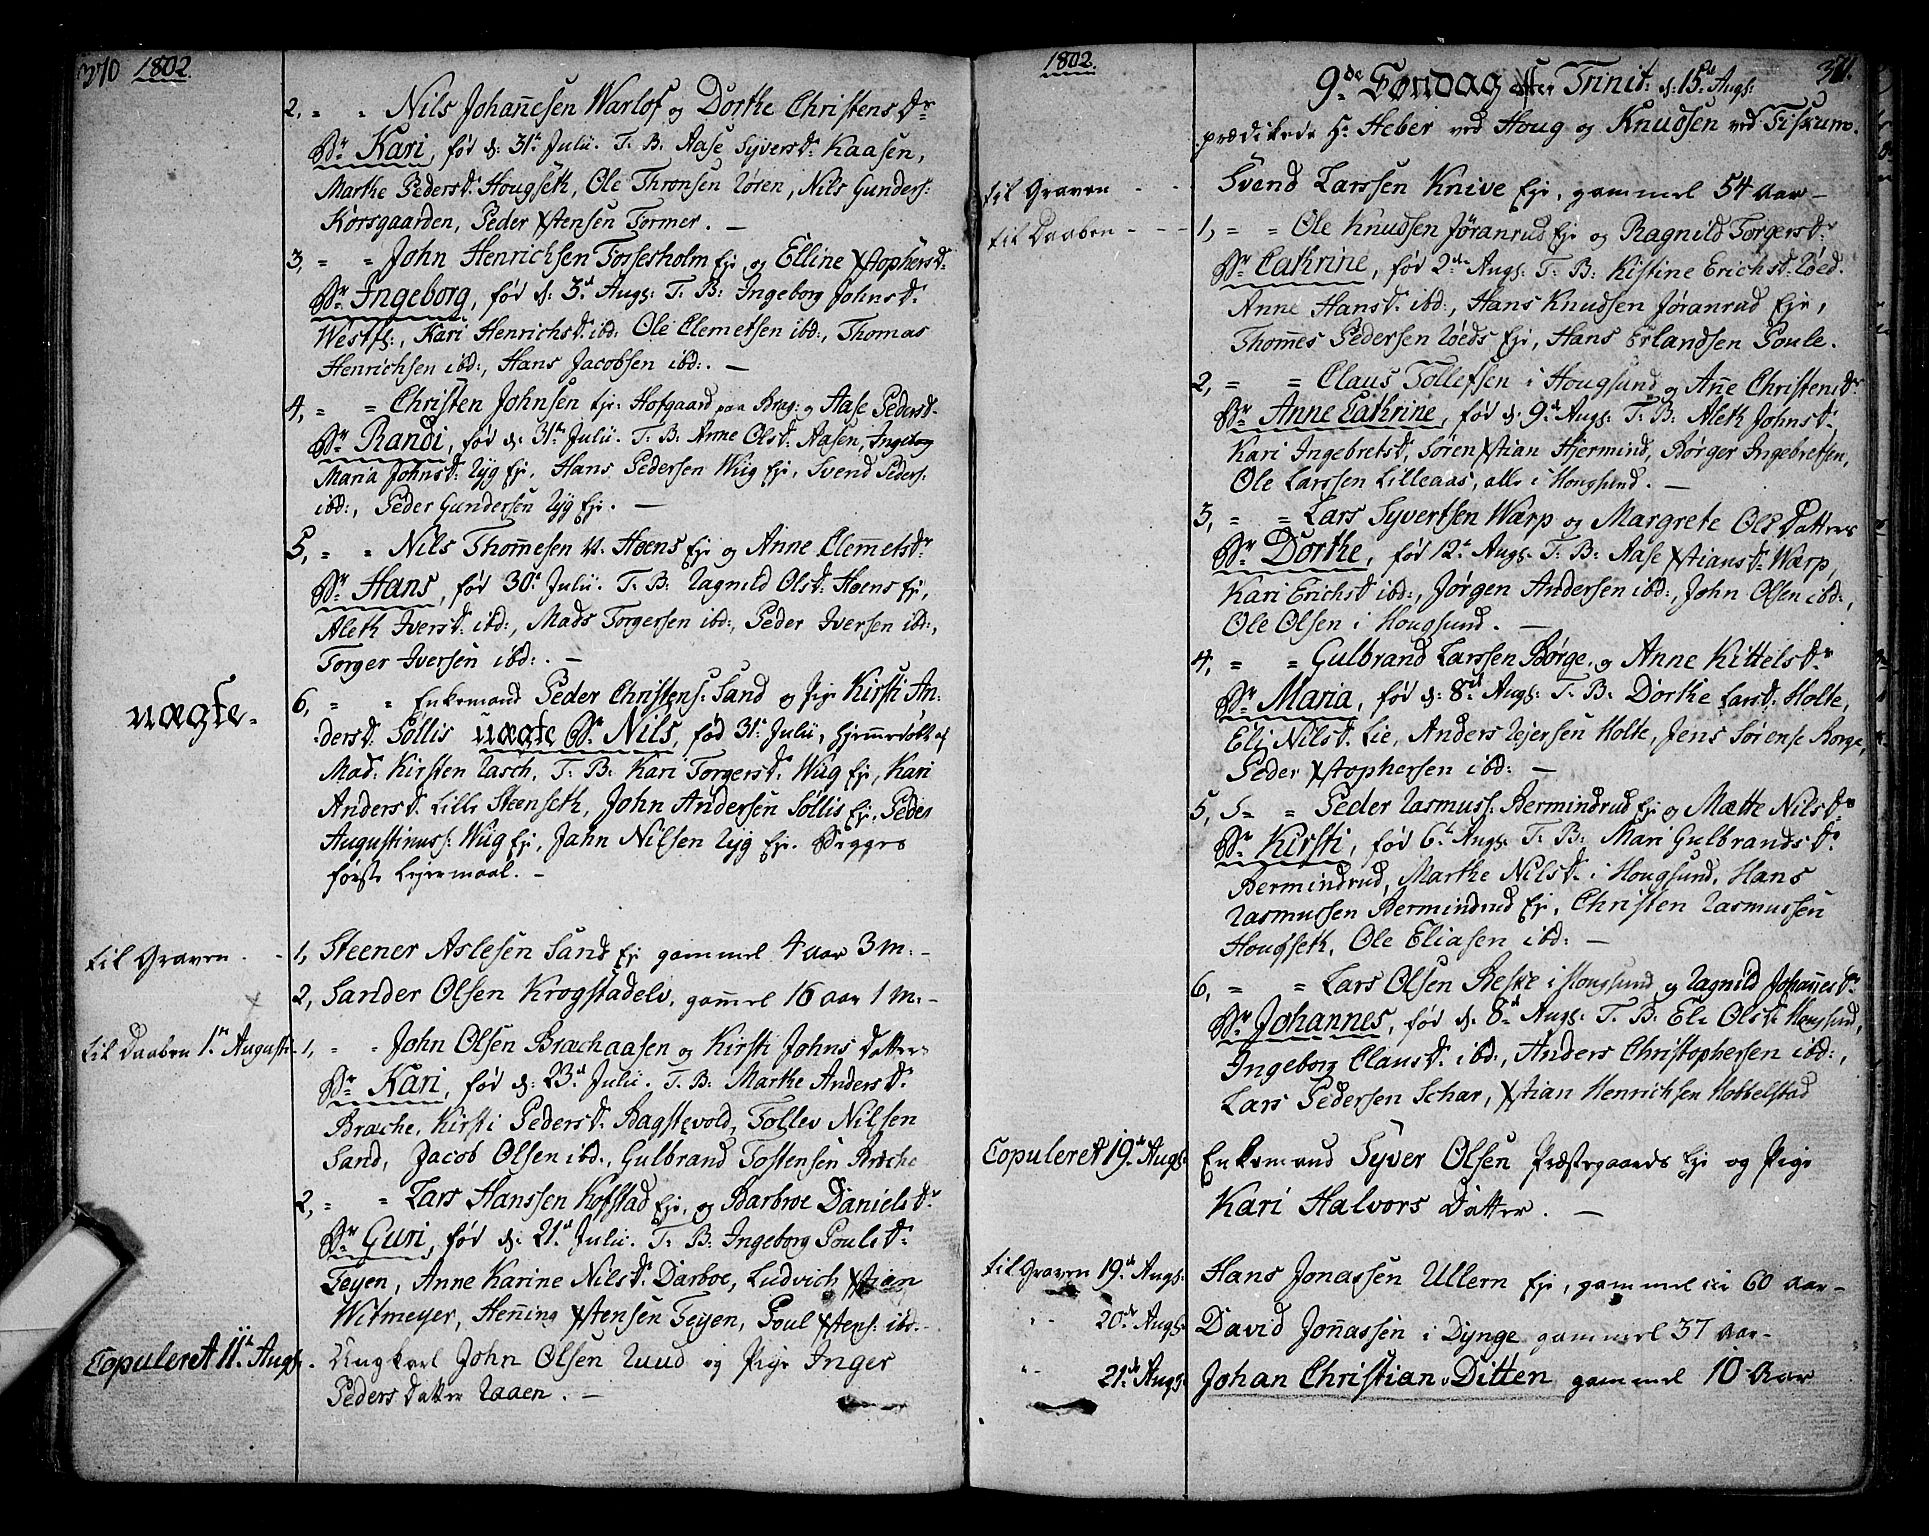 370 1802.
2, " " Nils Johannesen Warlof og Dorthe Christens Dr
Br Kari, fød d: 31te Julii. T. B. Aase Syversd: Kaasen,
Marthe Pedersd: Hougseth, Ole Thronsen Røren, Nils Gunders:
Korsgaarden, Peder Xstensen Tormer. —
3, " " John Henrichsen Fossesholm Eje og Elline Xstophersd:
Br Ingeborg, fød d: 3d Augs: T. B: Ingeborg Johnsd:
Westf:, Kari Henrichsd: ibd: Ole Clemetsen ibd:, Thomas
Henrichsen ibd:, Hans Jacobsen ibd:. —
4, " " Christen Johnsen Eje Hofgaard paa Brag: og Aase Pedersd:
Br Randi, fød d: 31te Julii. T. B: Anne Olsd: Aasen, Ingeborg
Maria Johnsd: Ryg Eje, Hans Pedersen Wiig Eje, Svend Peders:
ibd:, Peder Gundersen Ryg Eje. —
5, " " Nils Thommesen v. Hoens Eje og Anne Clemmetsdr
Br Hans, fød 30te Julii. T. B: Ragnild Olsd: Hoens Eje,
Aleth Iversd: ibd:, Mads Torgersen ibd:, Peder Iversen ibd:,
Torger Iversen ibd:. —
uægte. 6, " " Enkemand Peder Christens: Sand og Pige Kirsti An-
dersd: Sollis uægte Br Nils, fød 31te Julii, hjemmedøbt af
Mad: Kirsten Rasch. T. B: Kari Torgersd: Wiig Eje, Kari
Andersd: Lille Steenseth, John Andersen Sollis Eje, Peder
Augustinuss: Wiig Eje, Jahn Nilsen Ryg Eje. Begges
første Lejermaal. —
til Graven. - 1, Steener Aslesen Sand Eje gammel 4 Aar 3 M: -
2, Sander Olsen Krogstadelv, gammel 16 Aar 1 M: -
til Daaben 1te Augusti - 1, " " John Olsen Bræchaasen og Kirsti Johns Datter
Br Kari, fød d: 23d Julii. T. B: Marthe Andersd:
Bræche, Kirsti Pedersd: Bagstevold, Tollev Nilsen
Sand, Jacob Olsen ibd:, Gulbrand Tostensen Bræche
2, " " Lars Hanssen Kofstad Eje, og Barbroe Daniels Dr
Br Guri, fød d: 21d Julii. T. B: Ingeborg Poulsd:
Teyen, Anne Karine Nilsd: Darboe, Ludvich Xstian
Witmeyer, Henning Xstensen Teyen, Poul Xstens: ibd: -
Copuleret 11te Augs: Ungkarl John Olsen Ruud og Pige Inger
Peders Datter Raaen. —
1802. 371.
9de Søndag efter Trinit: d: 15de Augs:
prædikede Hr Heber ved Houg og Knudsen ved Fiskum.
til Graven - - Svend Larssen Knive Eje, gammel 54 Aar —
til Daaben - - - 1, " " Ole Knudsen Jøranrud Eje og Ragnild Torgersdr
Br Cathrine, fød 2den Augs: T. B: Kistine Erichsd: Røed.
Anne Hansd: ibd:, Hans Knudsen Jøranrud Eje,
Thommes Pedersen Røeds Eje, Hans Erlandsen Poule.
2, " " Claus Tollefsen i Hougsund og Anne Christensdr
Br Anne Cathrine, fød d: 9d Augs: T. B: Aleth Johnsd:
Kari Ingebretsd:, Søren Xstian Hjermind, Børger Ingebretsen,
Ole Larssen Lilleaas, alle i Hougsund. —
3, " " Lars Syvertsen Warp og Margrete Ols Datters
Br Dorthe, fød 12te Augs: T. B: Aase Xstiansd: Warp,
Kari Erichsd: ibd:, Jørgen Andersen ibd:, John Olsen ibd:,
Ole Olsen i Hougsund. —
4, " " Gulbrand Larssen Borge, og Anne Kittelsdr
Br Maria, fød d: 8de Augs: T. B: Dorthe Larsd: Holte,
Eli Nilsd: Lie, Anders Rejersen Holte, Jens Sørense Borge,
Peder Xstophersen ibd: —
5, S. " Peder Rasmuss: Bermindrud Eje og Mætte Nilsdr
Br Kirsti, fød 6te Augs: T. B: Mari Gulbrandsdr
Bermindrud, Marthe Nilsd: i Hougsund, Hans
Rasmussen Bermindrud Eje, Christen Rasmussen
Hougseth, Ole Eliasen ibd: —
6, " " Lars Olsen Beske i Hougsund og Ragnild Johannesdr
Br Johannes, fød d: 8d Augs: T. B: Eli Olsd: Hougsund,
Ingeborg Clausd: ibd:, Anders Christophersen ibd:,
Lars Pedersen Schar, Xstian Henrichsen Hobbelstad
Copuleret 19de Augs: Enkemand Syver Olsen Præstegaards Eje og Pige
Kari Halvors Datter. —
til Graven 19de Augs: Hans Jonassen Ullern Eje, gammel 60 Aar —
" - 20de Augs: David Jonassen i Dynge gammel 37 Aar —
" - 21de Augs: Johan Christian Ditten gammel 10 Aar